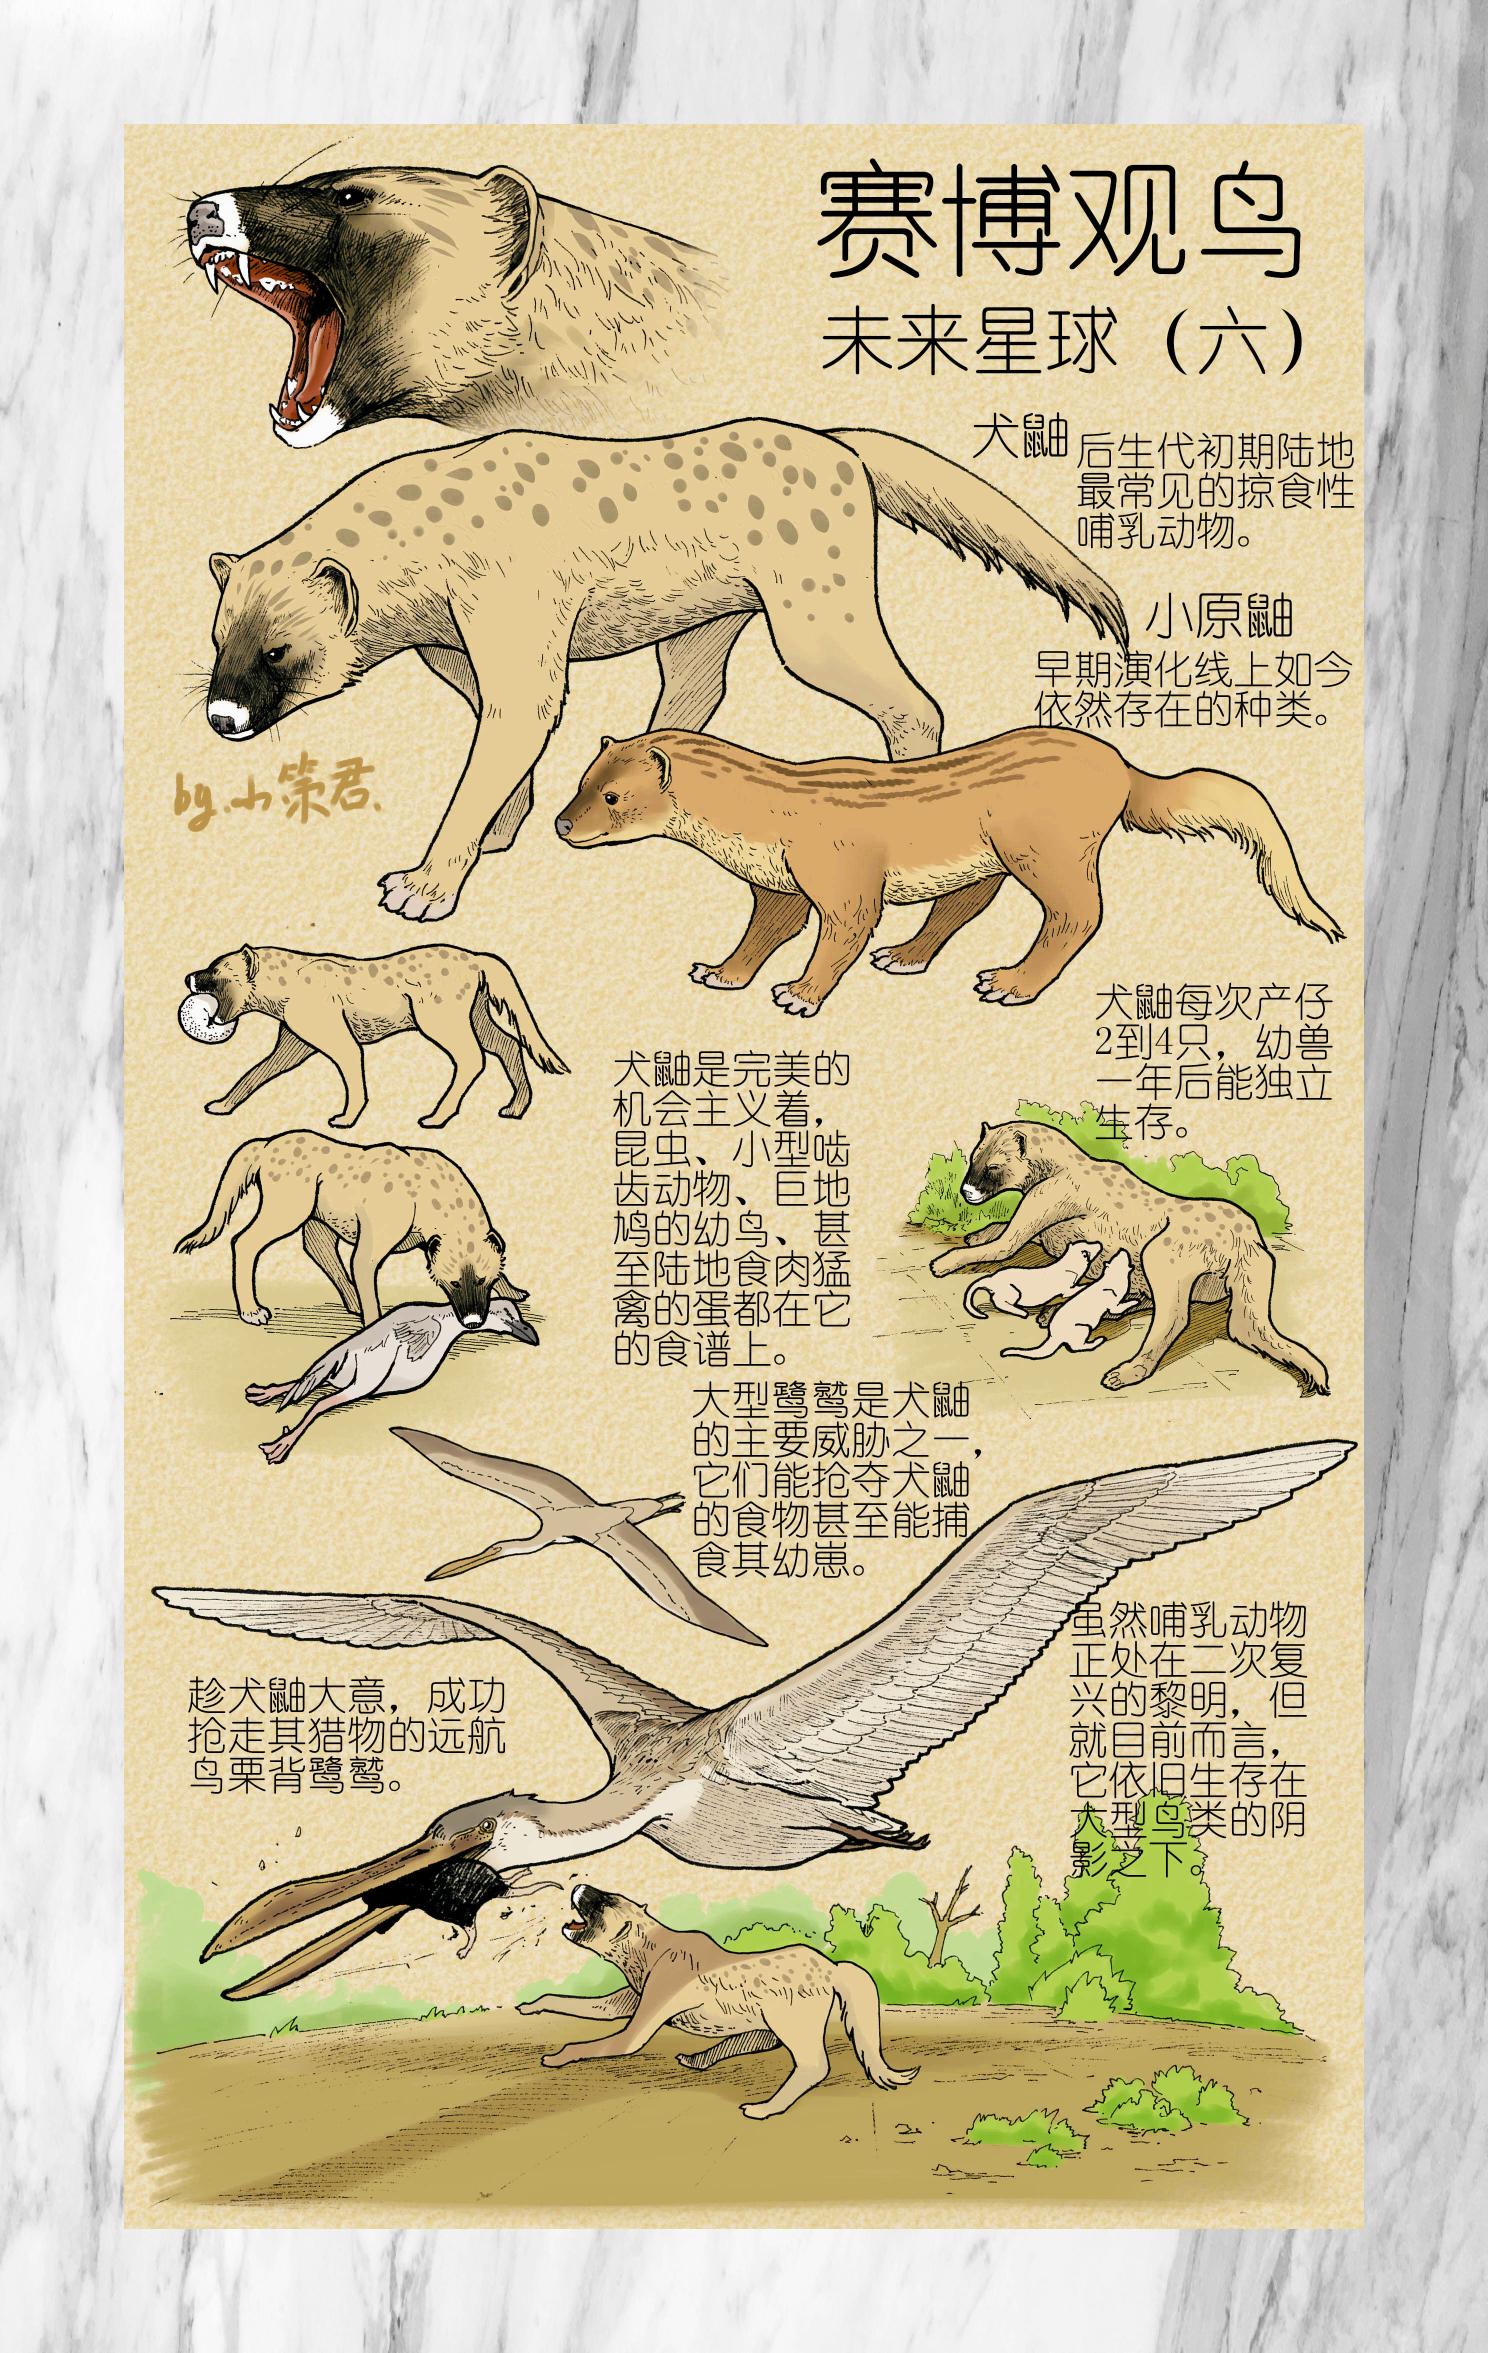 赛博观鸟
未来星球（六）
犬鼬
后生代初期陆地
最常见的掠食性
哺乳动物。
小原鼬
早期演化线上如今
依然存在的种类。
by.小策君.
犬鼬每次产仔
2到4只，幼兽
一年后能独立
生存。
犬鼬是完美的
机会主义着，
昆虫、小型啮
齿动物、巨地
鸠的幼鸟、甚
至陆地食肉猛
禽的蛋都在它
的食谱上。
大型鹭鹫是犬鼬
的主要威胁之一，
它们能抢夺犬鼬
的食物甚至能捕
食其幼崽。
趁犬鼬大意，成功
抢走其猎物的远航
鸟栗背鹭鹫。
虽然哺乳动物
正处在二次复
兴的黎明，但
就目前而言，
它依旧生存在
大型鸟类的阴
影之下。